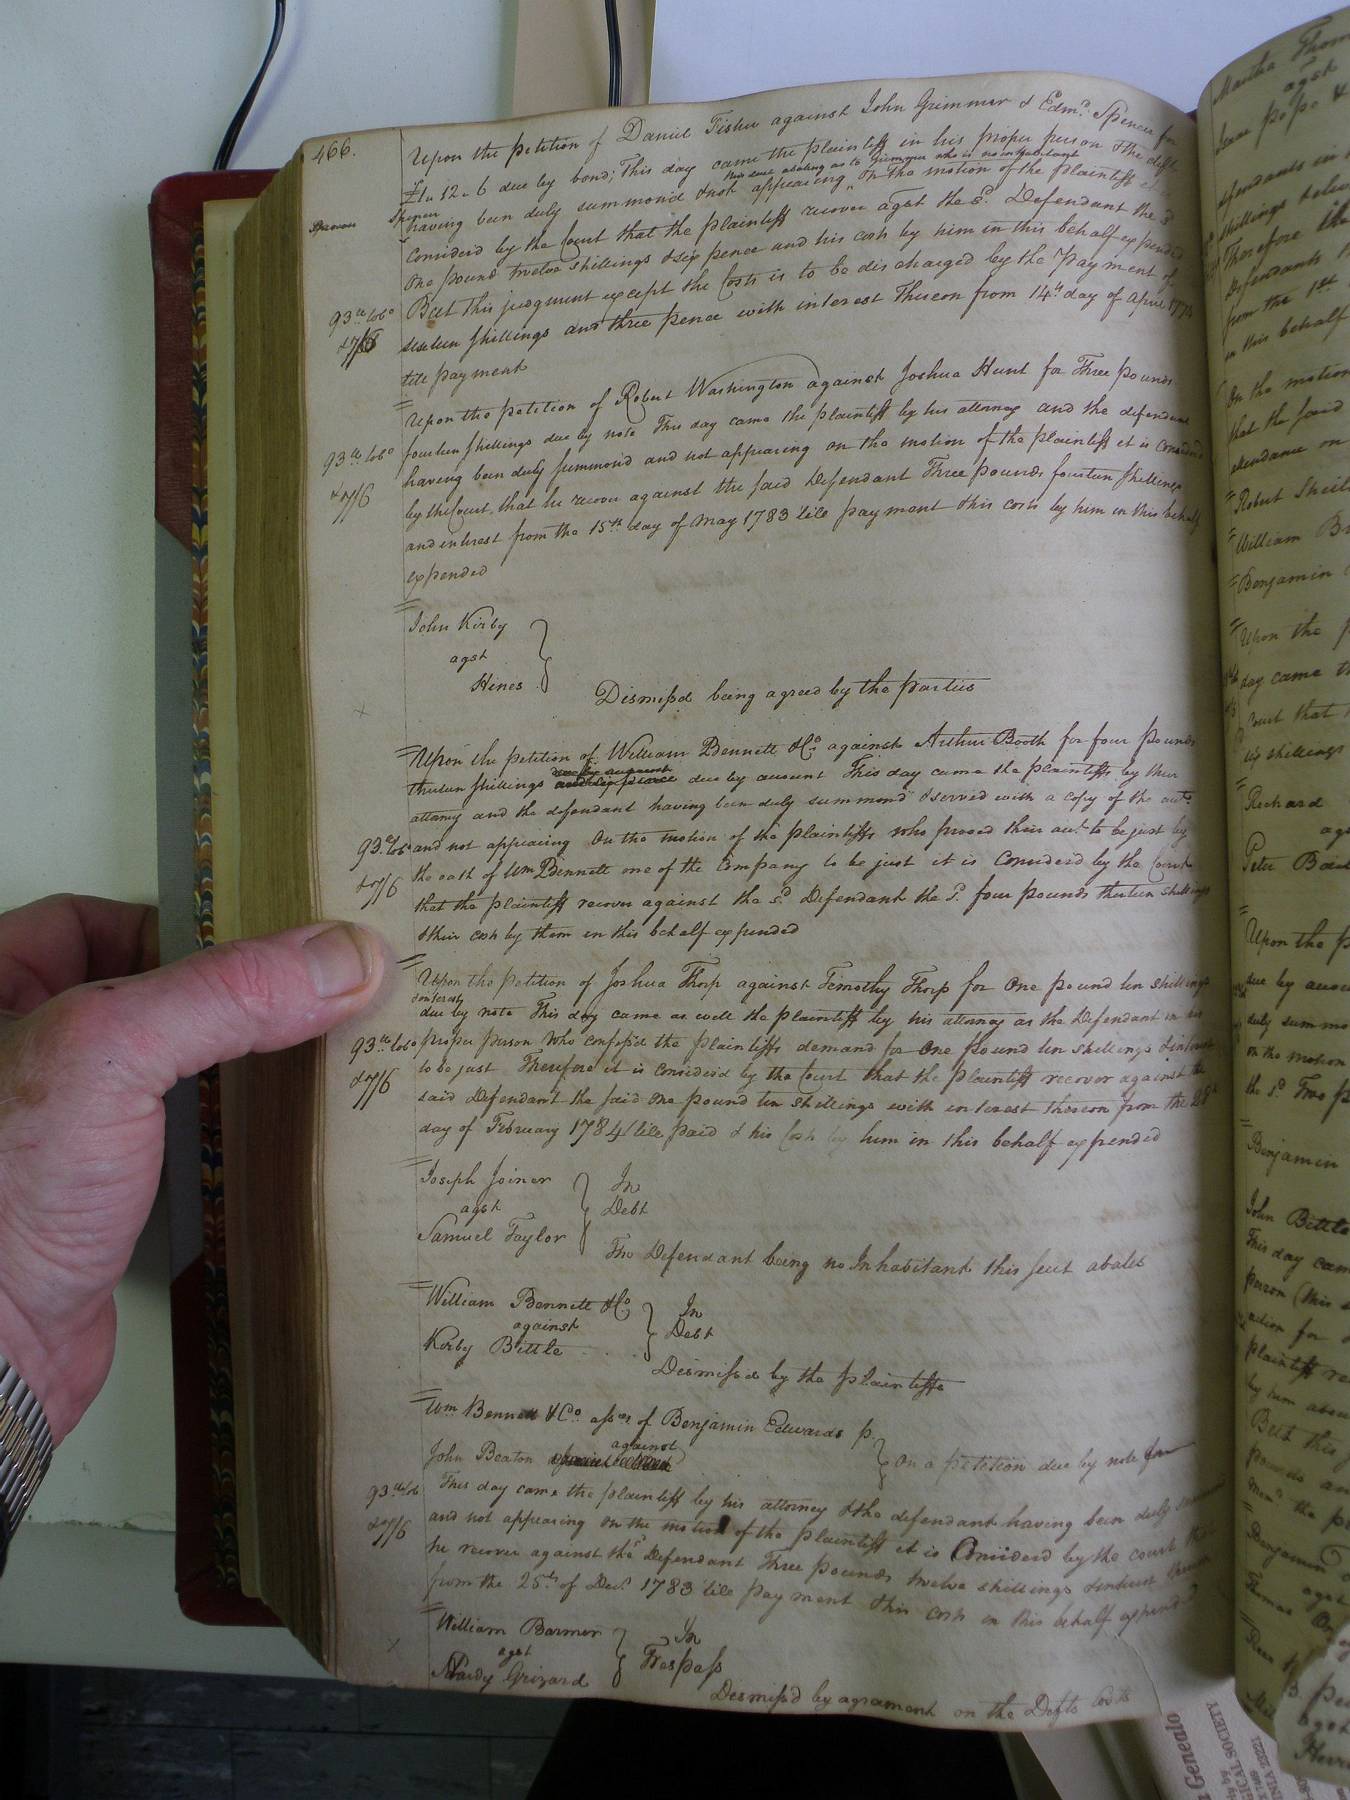 466.
Upon the petition of Daniel Fisher against John Grimmer & Edmd. Spencer for
£1..12..6 due by bond; This day came the plaintiff in his proper person & the deft
this suit abating as to Grimmer who is no inhabitant
Spencer having been duly summond & not appearing, On the motion of the plaintiff it is
Considerd by the Court that the plaintiff recover agst the sd. Defendant the sd
One pound twelve shillings & six pence and his costs by him in this behalf expended
But this judgment except the Costs is to be discharged by the payment of
93 lb tobo
sixteen shillings and three pence with interest thereon from 14th day of April
& 7/6
till payment
Upon the petition of Robert Washington against Joshua Hunt for Three pounds
fourteen shillings due by note This day came the plaintiff by his attorney and the defendant
93 lb tobo
having been duly summond and not appearing on the motion of the plaintiff it is Considerd
& 7/6
by the Court, that he recover against the said Defendant Three pounds, fourteen shillings
and interest from the 15th day of May 1783 till payment & his costs by him in this behalf
expended
John Kirby
agst
Hines
Dismissd being agreed by the parties
Upon the petition of William Bennett & Co. against Arthur Booth for four pounds
thirteen shillings due by account This day came the plaintiffs by their
attorney and the defendant having been duly summond & served with a copy of the acct.
93 lb tobo and not appearing On the motion of the plaintiffs who proved their acct. to be just by
& 7/6 the oath of Wm Bennett one of the Company to be just it is Considerd by the Court
that the plaintiff recover against the sd. Defendant the sd. four pounds thirteen shillings
& their costs by them in this behalf expended
Upon the petition of Joshua Thorp against Timothy Thorp for One pound ten shillings
& interest
due by note This day came as well the plaintiff by his attorney as the Defendant in his
93 lb tobo proper person who confess'd the plaintiffs demand for One pound ten shillings & interest
& 7/6 to be just Therefore it is considerd by the Court that the plaintiff recover against the
said Defendant the said One pound ten shillings with interest thereon from the 28th
day of February 1784 till paid & his Costs by him in this behalf expended
Joseph Joiner
agst
Samuel Taylor
In
Debt
The Defendant being no Inhabitant this suit abates
William Bennett & Co
against
Kirby Bittle
In
Debt
Dismissd by the plaintiffs
Wm Bennett & Co. assee of Benjamin Edwards p.
against
John Beaton
On a petition due by note for
93 lb tob This day came the plaintiff by his attorney & the defendant having been duly summond
& 7/6 and not appearing on the motion of the plaintiff it is Considerd by the court that
he recover against the sd Defendant Three pounds twelve shillings & interest thereon
from the 25th of Decr. 1783 till payment & his costs in this behalf expended
William Barmer
agst
Hardy Grizard
In
Trespass
Dismissd by agreement on the Defts Costs
Martha
agst
pendants in
shillings
Therefore the
Defendants
from the 1st
in this behalf
On the motion
that the said
attendance on
Robert
William
Benjamin
Upon the
day came
Court that
six shillings
Richard
Peter
Upon the
due by
duly
on the motion
the sd Two
Benjamin
John Bittle
This day came
person (this
action for
plaintiff
But this
pounds an
Benjamin
agst
Thomas
Genealo
ICAL SOCIETY